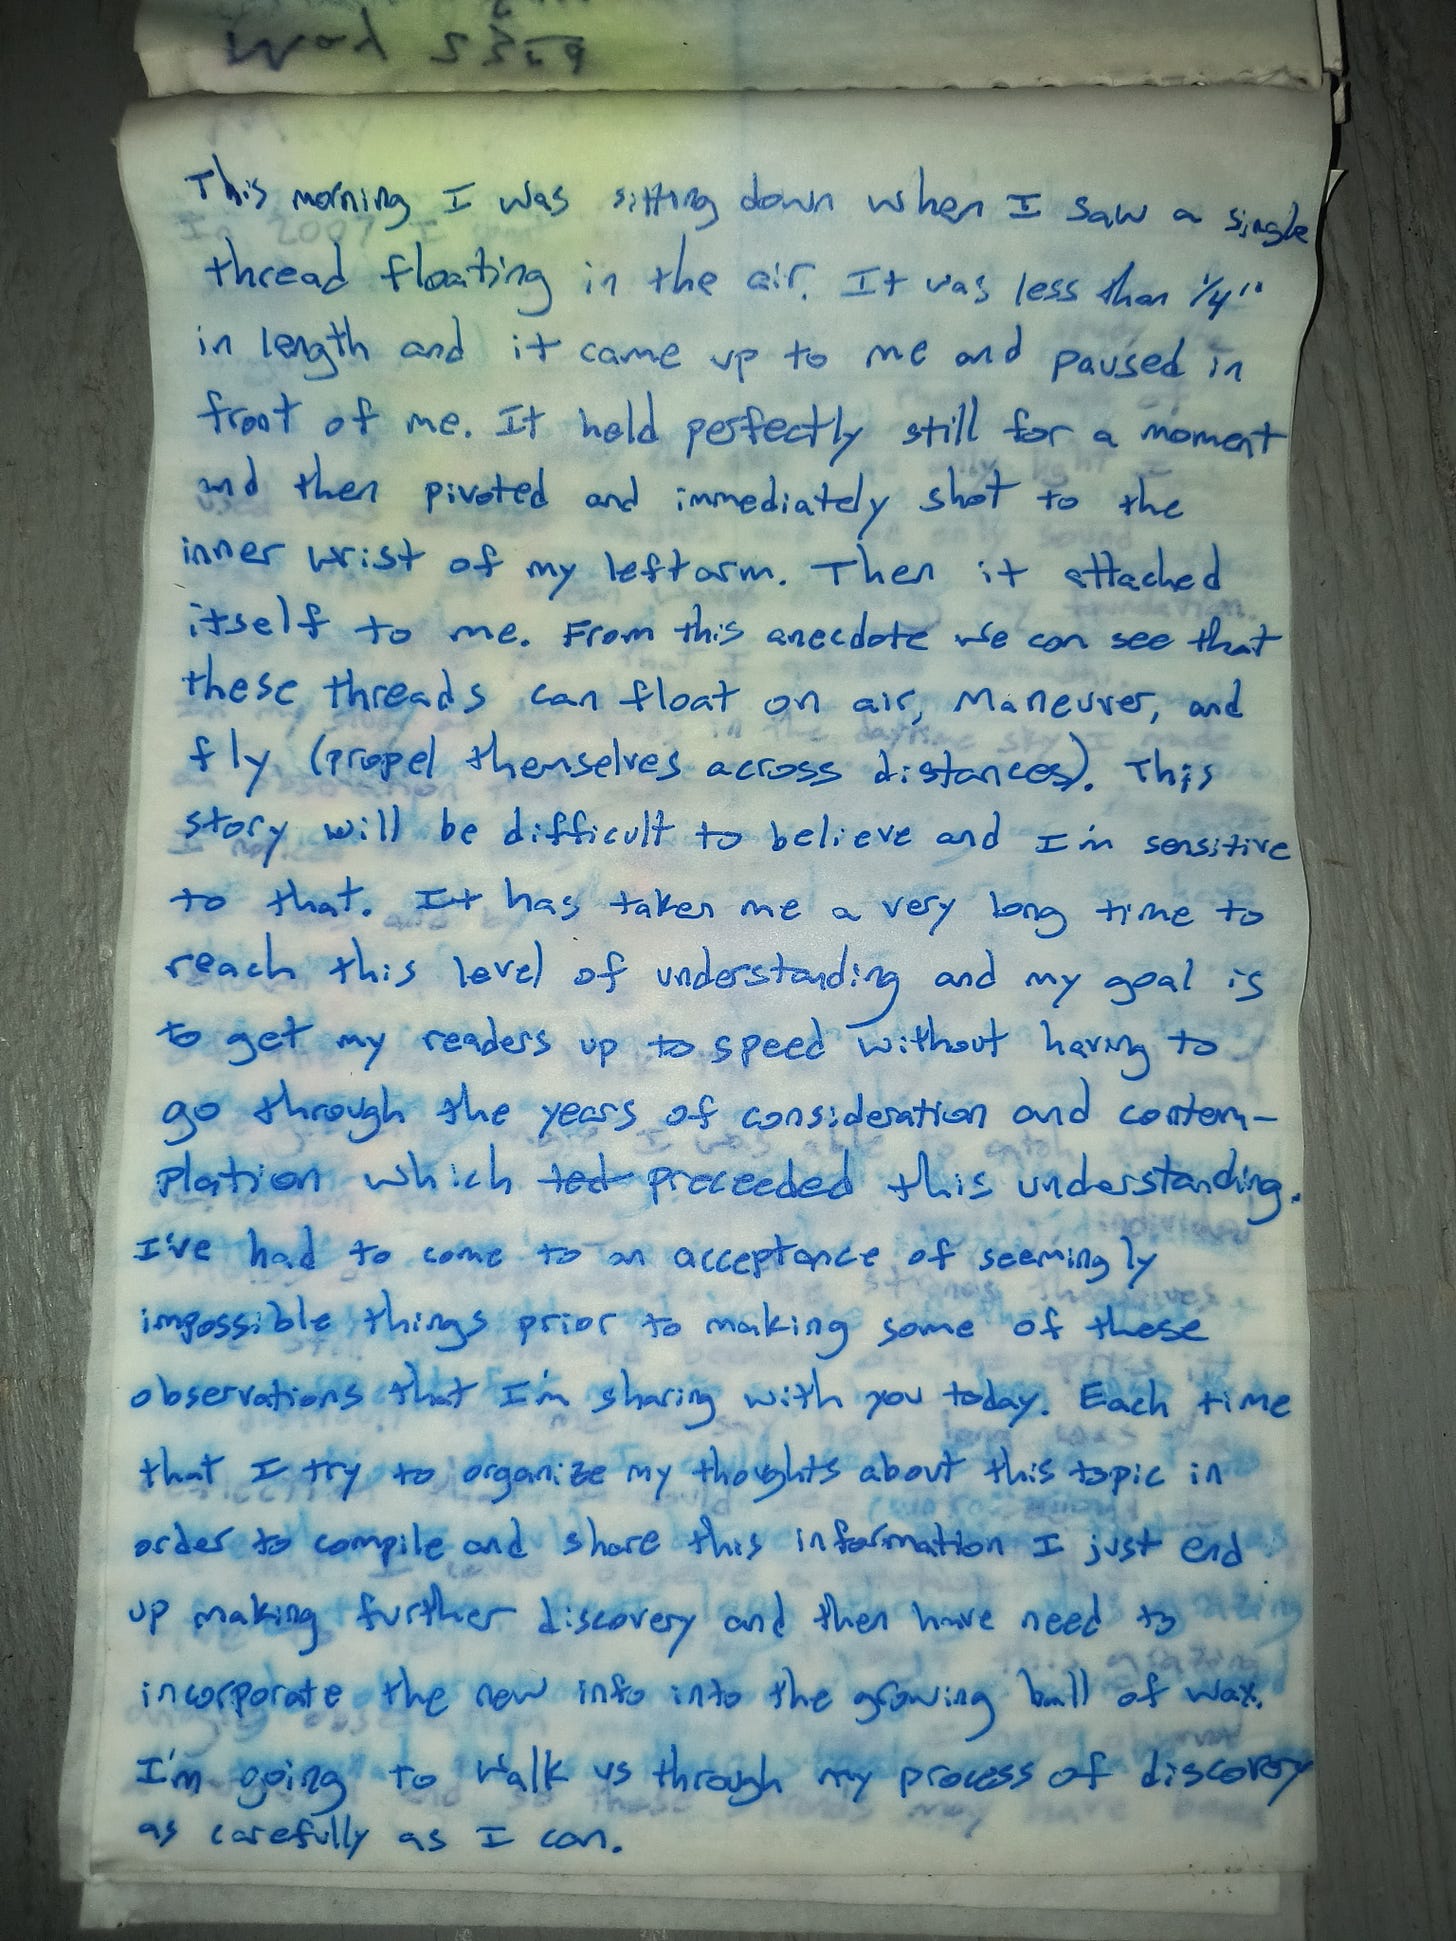 This morning I was sitting down when I saw a single
thread floating in the air. It was less than 1/4"
in length and it came up to me and paused in
front of me. It held perfectly still for a moment
and then pivoted and immediately shot to the
inner wrist of my left arm. Then it attached
itself to me. From this anecdote we can see that
these threads can float on air, maneuver, and
fly (propel themselves across distances). This
story will be difficult to believe and I'm sensitive
to that. It has taken me a very long time to
reach this level of understanding and my goal is
to get my readers up to speed without having to
go through the years of consideration and contem-
plation which preceeded this understanding.
I've had to come to an acceptance of seemingly
impossible things prior to making some of these
observations that I'm sharing with you today. Each time
that I try to organize my thoughts about this topic in
order to compile and share this information I just end
up making further discovery and then have need to
incorporate the new info into the growing ball of wax.
I'm going to walk us through my process of discovery
as carefully as I can.